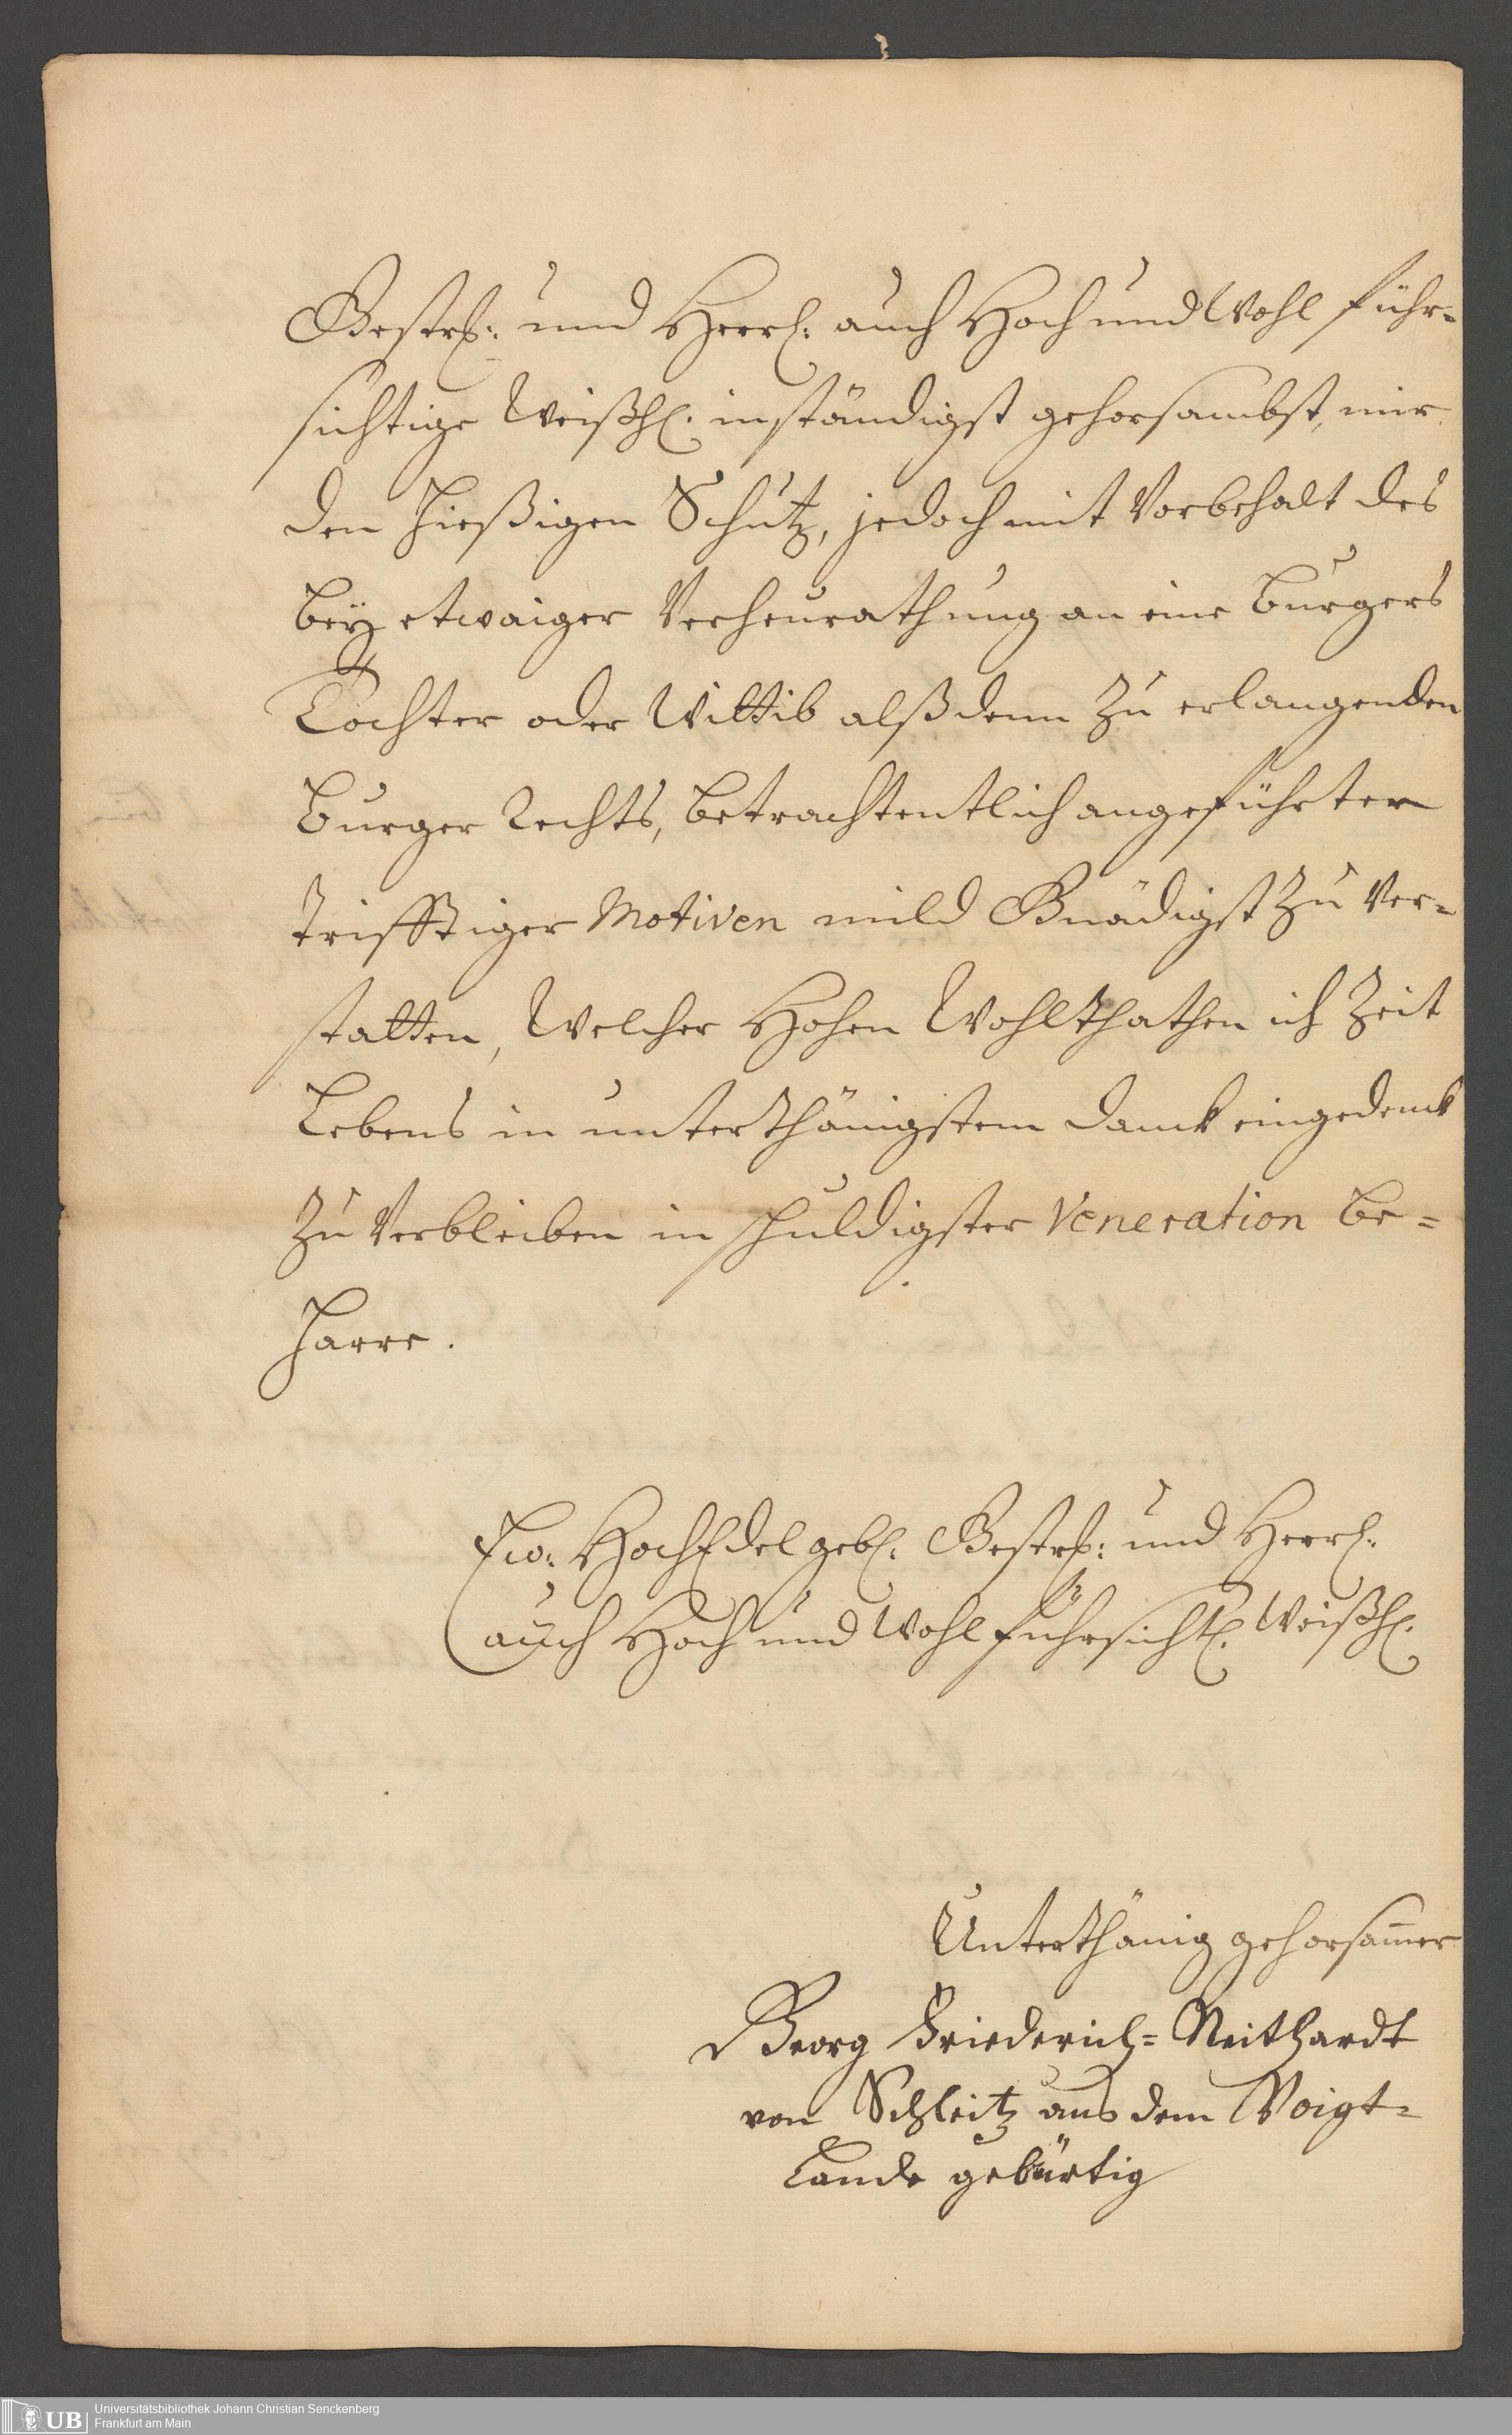 Gestrh: und Herrl: auch Hoch und Wohl führ=
sichtige Weißh. inständigst gehorsambst, mir
den hießigen Schutz, jedoch mit Vorbehalt des
beÿ etwaiger Verheurathung an eine burgers
Tochter oder Wittib alßdenn zu erlangenden
Burger Rechts, betrachtentlich angeführter
trifftiger Motiven mild Gnädigst zu Ver=
statten, Welcher Hohen Wohlthathen ich Zeit
Lebens in unterthänigstem danck eingedenck
zu Verbleiben in schuldigster Veneration be=
harre.
Ew: HochEdelgebl. Gestrh: und Herrl.
auch Hoch und Wohl führsichtl. Weißh.
Unterthänig gehorsam̅er
Georg Friederich= Neithardt
von Schleitz aus dem Voigt=
Lande gebürtig
UB
Universitätsbibliothek Johann Christian Senckenberg
Frankfurt am Main